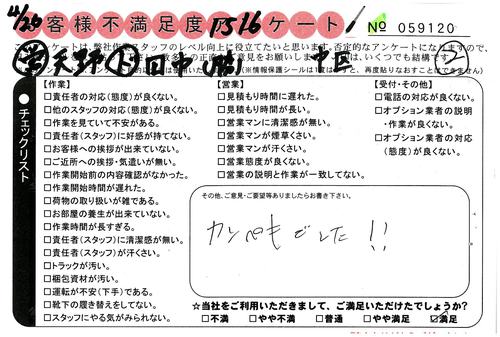 4/20 お客様不満足度 1516 アンケート!
№ 059120
このアンケートは、弊社作業スタッフのレベル向上に役立てたいと思います。否定的なアンケートになりますので、
いくつでも結構です。
(※情報保護シールは1度はがすと、再度貼りなおすことができません)
営 天野 作 田中(勝) 中区 2
チェックリスト
【作業】
□責任者の対応(態度)が良くない。
□他のスタッフの対応(態度)が良くない。
□作業を見ていて不安がある。
□責任者(スタッフ)に好感が持てない。
□お客様への挨拶が出来ていない。
□ご近所への挨拶・気遣いが無い。
□作業開始前の内容確認がなかった。
□作業開始時間が遅れた。
□荷物の取り扱いが雑である。
□お部屋の養生が出来ていない。
□作業時間が長すぎる。
□責任者(スタッフ)に清潔感が無い。
□責任者(スタッフ)が汗くさい。
□トラックが汚い。
□梱包資材が汚い。
□運転が不安(下手)である。
□靴下の履き替えをしてない。
□スタッフにやる気がみられない。
【営業】
□見積もり時間に遅れた。
□見積もり時間が長い。
□営業マンに清潔感が無い。
□営業マンが煙草くさい。
□営業マンが汗くさい。
□営業態度が良くない。
□営業の説明と作業が一致してない。
【受付・その他】
□電話の対応が良くない。
□オプション業者の説明
・作業が良くない。
□オプション業者の対応
(態度)が良くない。
その他、ご意見・ご要望等ありましたらお書き下さい。
カンペキでした!!
☆当社をご利用いただきまして、ご満足いただけたでしょうか?
□不満 □やや不満 □普通 □やや満足 ☑満足